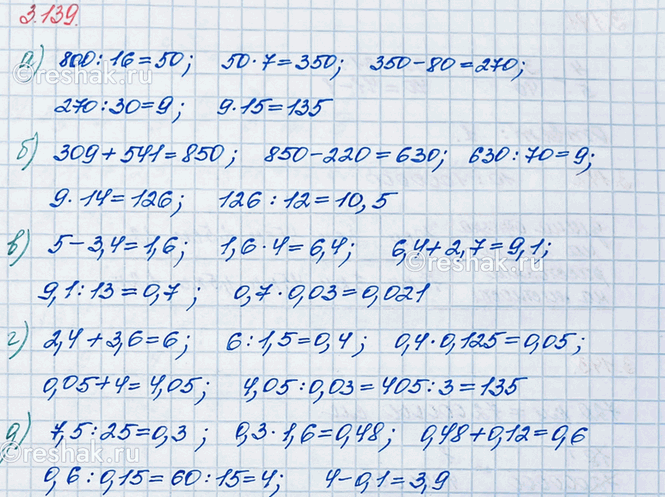 3.139.
а) 800:16=50; 50·7=350; 350-80=270;
270:30=9; 9·15=135
б) 309+541=850; 850-220=630; 630:70=9;
9·14=126; 126:12=10,5
в) 5-3,4=1,6; 1,6·4=6,4; 6,4+2,7=9,1;
9,1:13=0,7; 0,7·0,03=0,021
г) 2,4+3,6=6; 6:1,5=0,4; 0,4·0,125=0,05;
0,05+4=4,05; 4,05:0,03=405:3=135
д) 7,5:25=0,3; 0,3·1,6=0,48; 0,48+0,12=0,6
0,6:0,15=60:15=4; 4-0,1=3,9